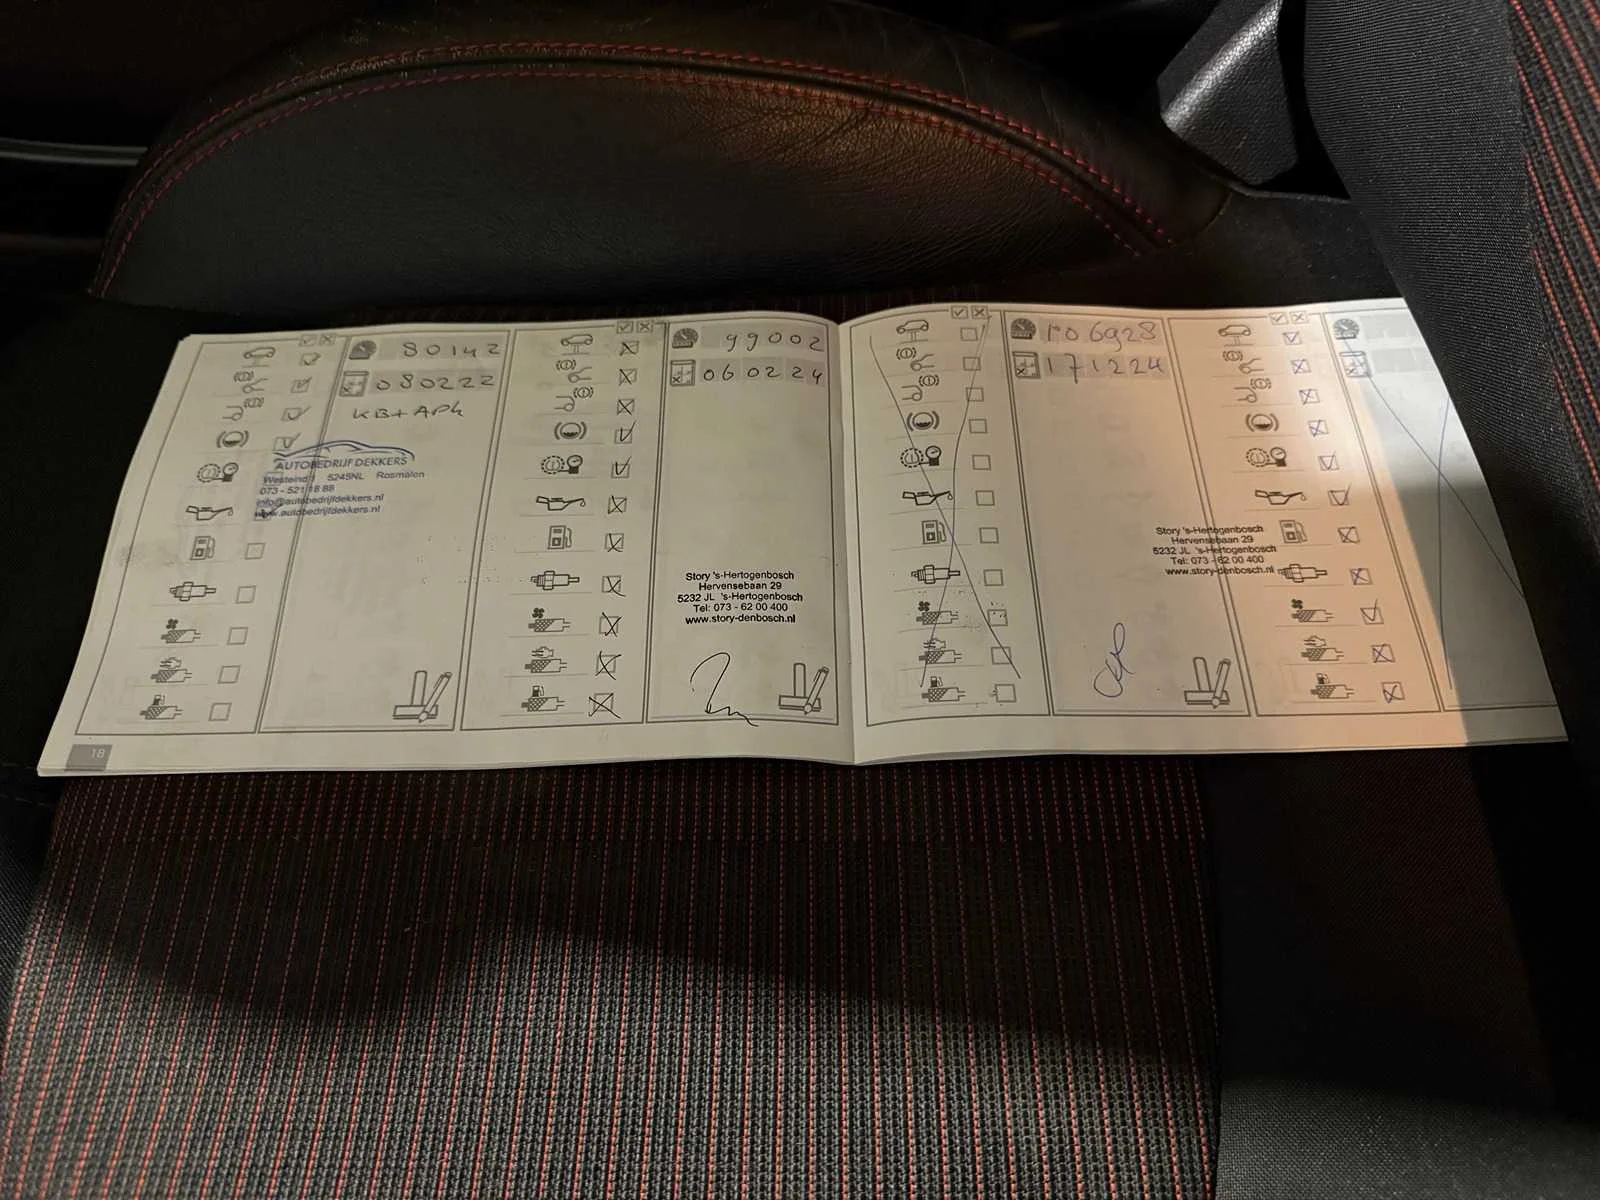 80142
080222
KB+APK
AUTOBEDRIJF DEKKERS
Westeind 1 5245NL Rosmalen
073 - 521 18 88
info@autobedrijfdekkers.nl
www.autobedrijfdekkers.nl
18
99002
060224
Story 's-Hertogenbosch
Hervensebaan 29
5232 JL 's-Hertogenbosch
Tel: 073 - 62 00 400
www.story-denbosch.nl
106928
171224
Story 's-Hertogenbosch
Hervensebaan 29
5232 JL 's-Hertogenbosch
Tel: 073 - 62 00 400
www.story-denbosch.nl